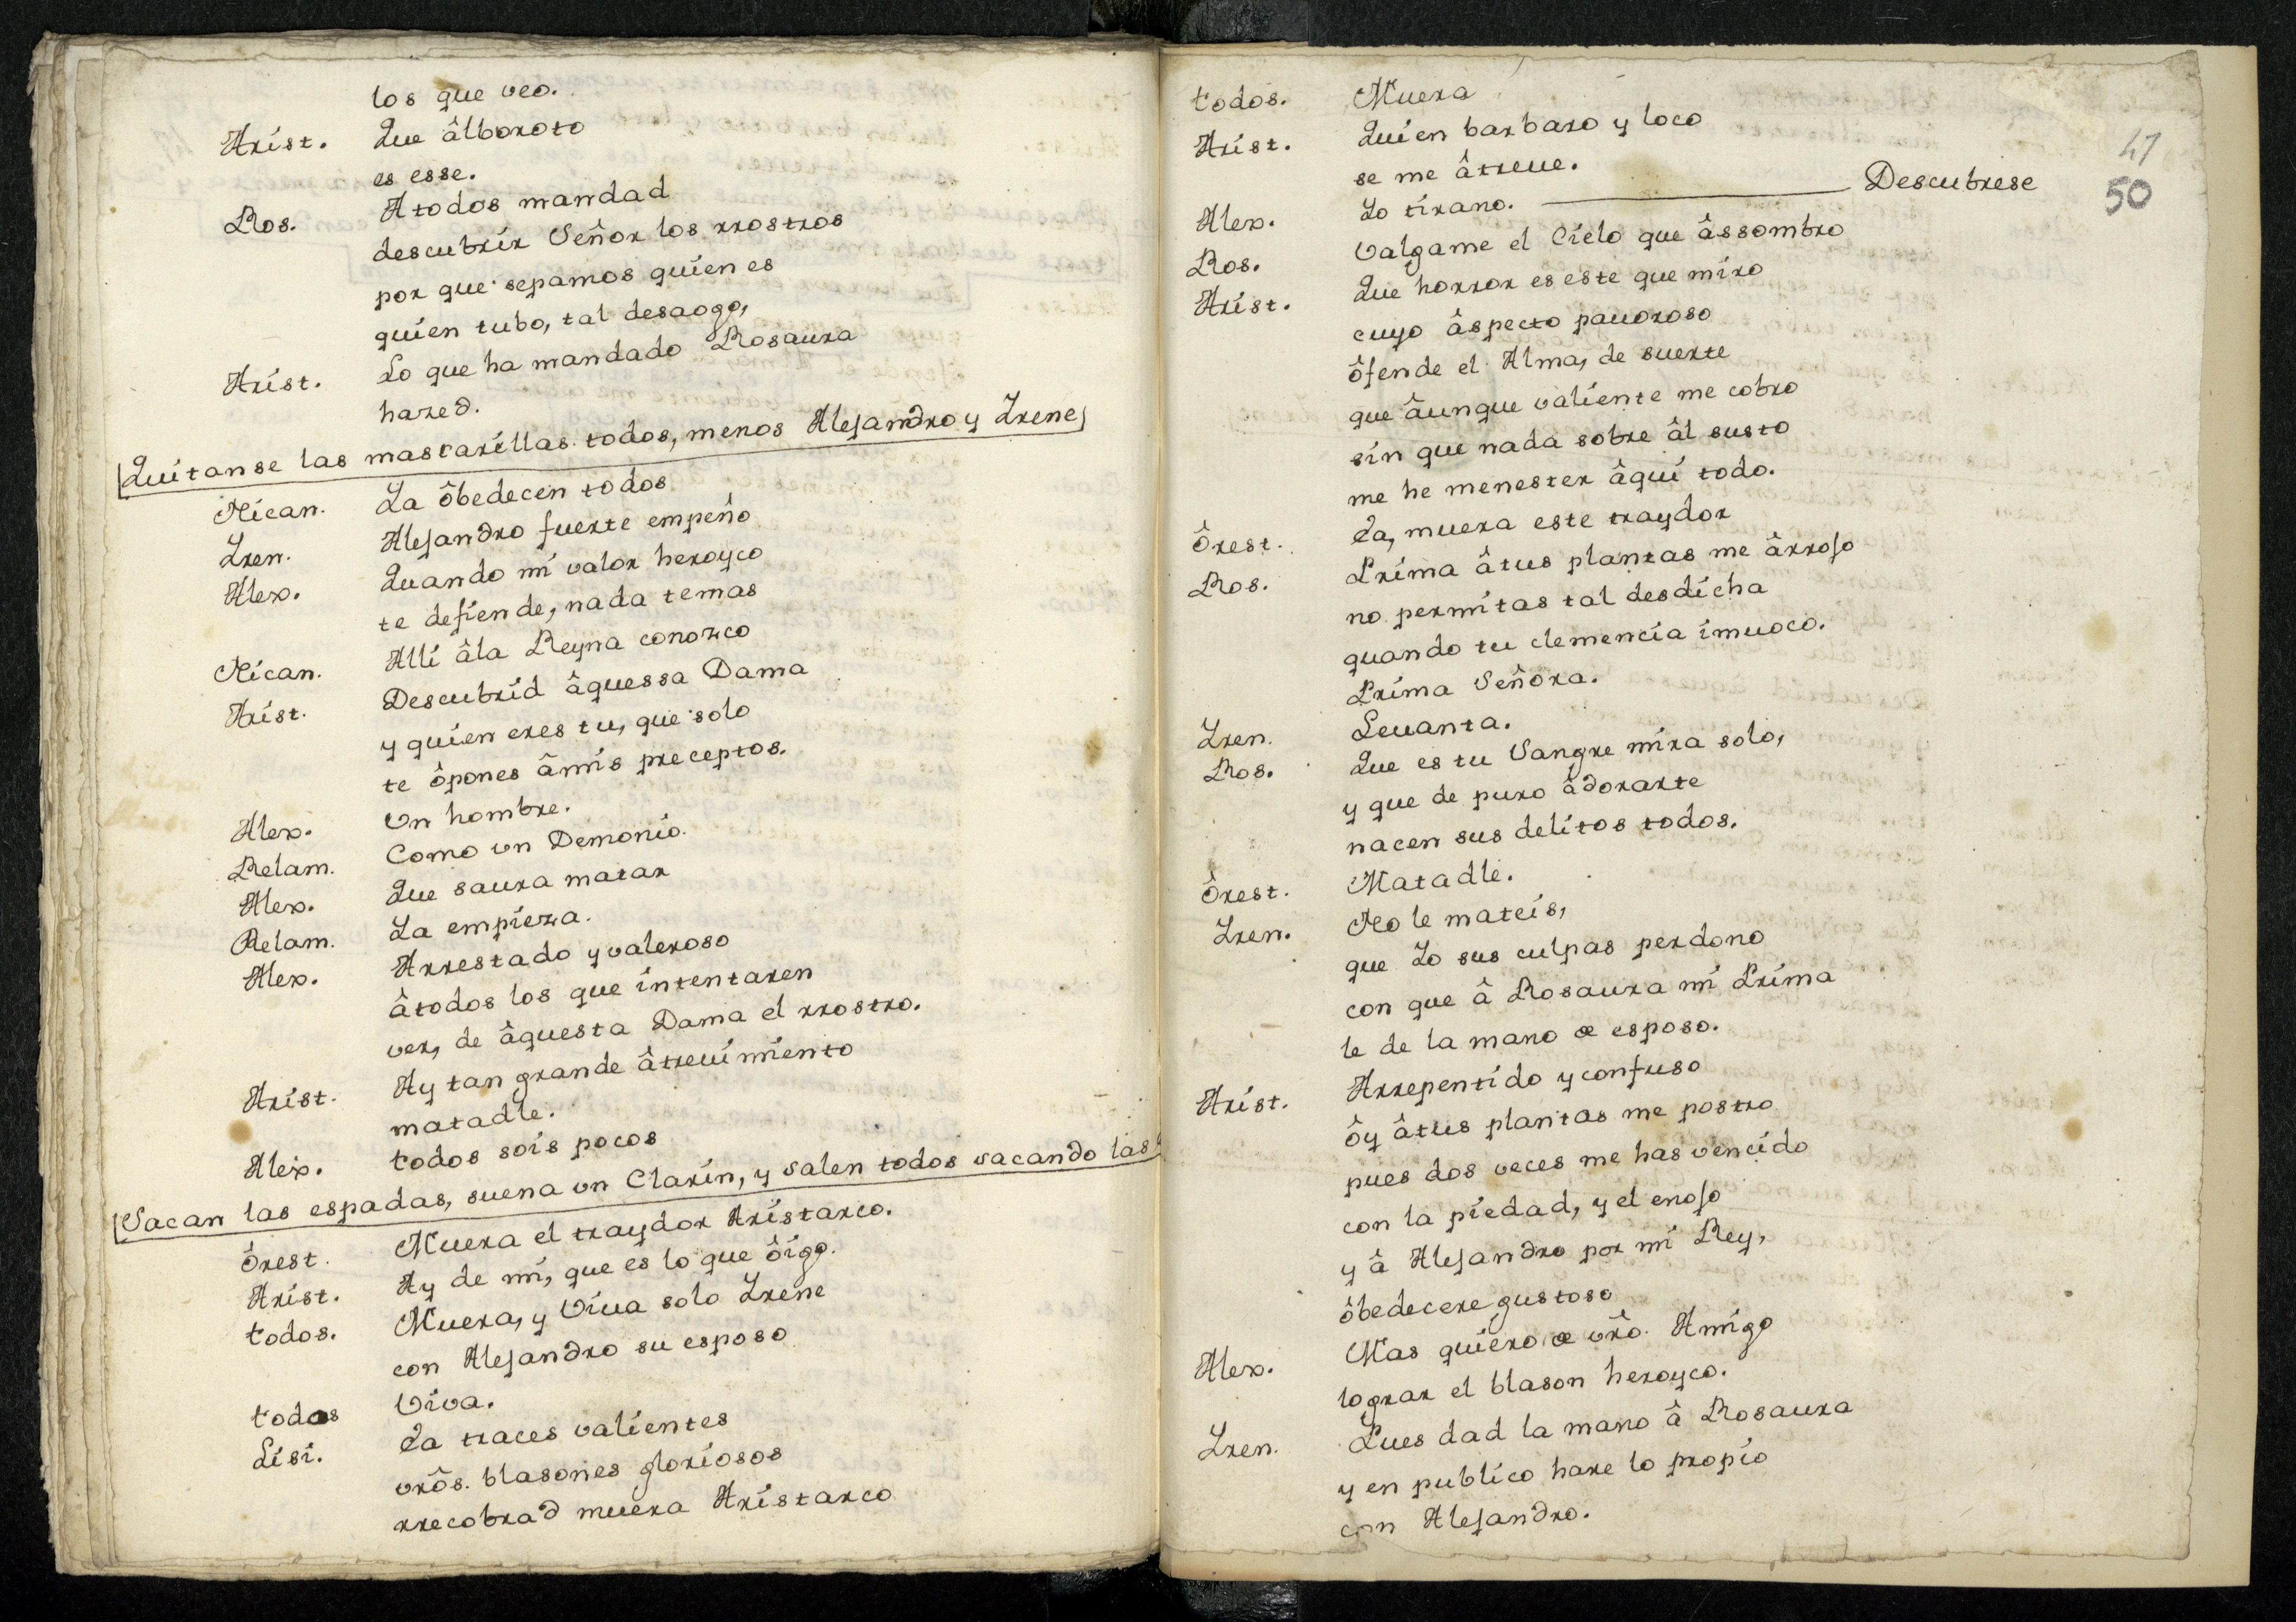 los que veo.
Arist. Que âlboroto
es esse.
Ros. A todos mandad
descubrir Señor los rrostros
por que sepamos quien es
quien tubo, tal desaogo,
Arist. Lo que ha mandado Rosaura
hazed.
Quitanse las mascarillas todos, menos Alejandro y Irene
Nican. Ya ôbedecen todos
Iren. Alejandro fuerte empeño
Alex. Quando mi valor heroyco
te defiende, nada temas
Nican. Alli âla Reyna conozco
Arist. Descubrid âquessa Dama
y quien eres tu, que solo
te ôpones âmis preceptos.
Alex. Vn hombre.
Relam. Como vn Demonio.
Alex. Que saura matar
Relam. Ya empieza.
Alex. Arrestado y valeroso
âtodos los que intentaren
ver, de âquesta Dama el rrostro.
Arist. Ay tan grande âtreuimiento
matadle.
Alex. todos sois pocos
Sacan las espadas, suena vn Clarin, y salen todos sacando las
ôrest. Muera el traydor Aristarco.
Arist. Ay de mi, que es lo que ôigo.
todos. Muera, y Viua solo Irene
con Alejandro su esposo
todos Viva.
Lisi. Ea traces valientes
vrôs. blasones gloriosos
rrecobrad muera Aristarco
todos. Muera
Arist. Quien barbaro y loco
se me âtreue.
Alex. Yo tirano. Descubrese
Ros. Valgame el Cielo que âssombro
Arist. Que horror es este que miro
cuyo âspecto pauoroso
ôfende el Alma, de suerte
que âunque valiente me cobro
sin que nada sobre âl susto
me he menester âqui todo.
Ôrest. Ea, muera este traydor
Ros. Prima âtus plantas me ârrojo
no permitas tal desdicha
quando tu clemencia imuoco.
Prima Señora.
Iren. Leuanta.
Ros. Que es tu Sangre mira solo,
y que de puro âdorarte
nacen sus delitos todos.
Ôrest. Matadle.
Iren. No le mateis,
que Yo sus culpas perdono
con que â Rosaura mi Prima
le de la mano de esposo.
Arist. Arrepentido y confuso
ôy âtus plantas me postro
pues dos veces me has vencido
con la piedad, y el enojo
y â Alejandro por mi Rey,
ôbedecere gustoso
Alex. Mas quiero de vrô. Amigo
lograr el blason heroyco.
Iren. Pues dad la mano â Rosaura
y en publico hare lo propio
con Alejandro.
47
50